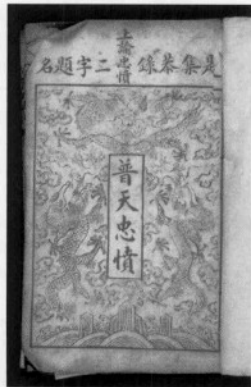 是集恭錄
上諭忠憤
二字題名
普天忠憤